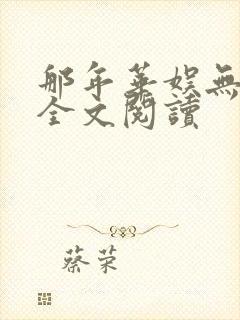 那年華娛無
全文閱讀
蔡荣